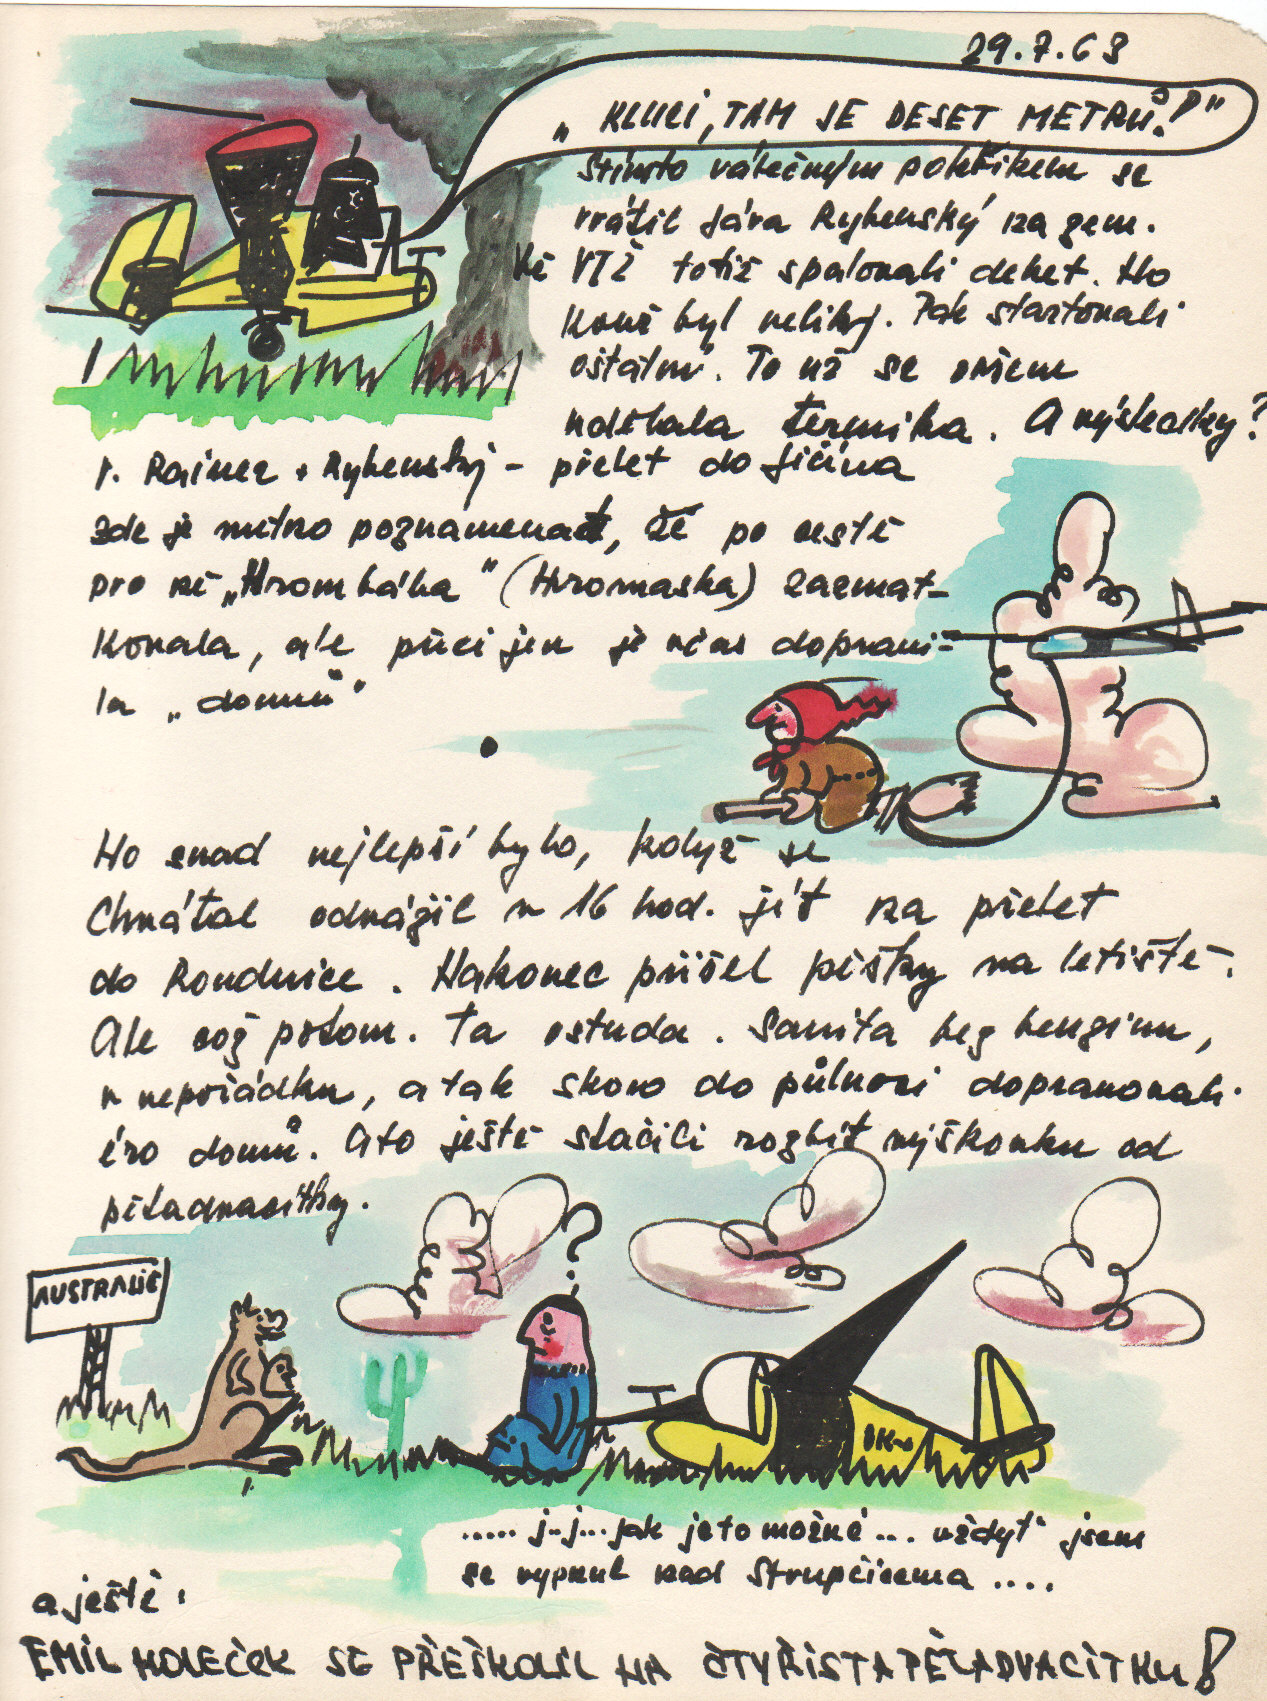 29.7.63
„KLUCI, TAM JE DESET METRŮ!"
S tímto válečným pokřikem se
vrátil Jára Rybenský na zem.
Ve VTŽ totiž spalovali dehet. No
kouř byl veliký. Pak startovali
ostatní. To už se ovšem
udělala termika. A výsledky?
1. Rainer + Rybenský - přelet do Jičína
zde je nutno poznamenat, že po cestě
pro ně „Hrombába" (Hromaska) zazmat-
kovala, ale přeci jen je včas dopravi-
la „domů"
No snad nejlepší bylo, když se
Chvátal odvážil v 16 hod. jít na přelet
do Roudnice. Nakonec přišel pěšky na letiště.
Ale což potom. Ta ostuda. Sanita bez benzinu,
v nepořádku, a tak skoro do půlnoci dopravovali
éro domů. A to ještě stačili rozbít výškovku od
pětadvacítky.
AUSTRALIE
?
OK-
..... j..j... jak je to možné... vždyť jsem
se vypnul nad Strupčicema ....
a ještě:
EMIL HOLEČEK SE PŘEŠKOLIL NA ČTYŘISTAPĚTADVACÍTKU!